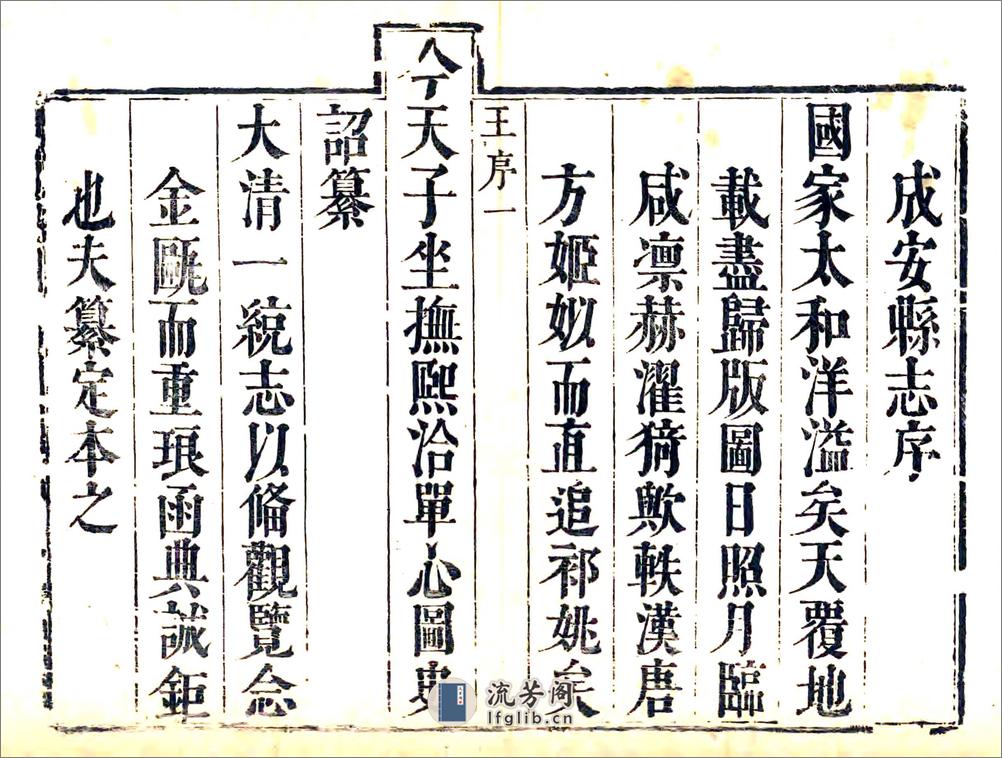 成安縣志序
國家太和洋溢矣天覆地
載盡歸版圖日照月臨
咸凛赫濯猗歟軼漢唐
方姬姒而直追祁姚矣
王序一
今天子坐撫熙洽單心圖史
詔纂
大清一統志以俻觀覽念
金甌而重琅函典誠鉅
也夫纂定本之
流芳阁
lfglib.cn